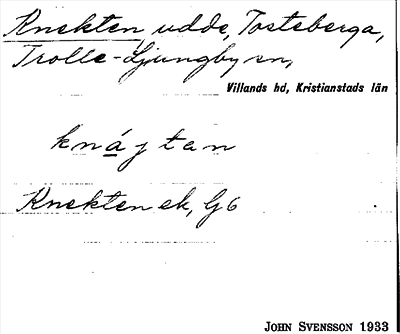 Knekten, udde, Tosteberga,
Trolle-Ljungby sn,
Villands hd, Kristianstads län
knájtan
Knekten ek, G6
JOHN SVENSSON 1933